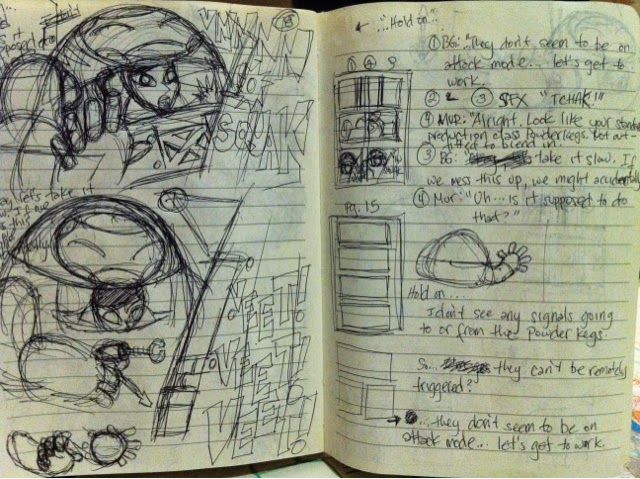 Hold
14
VNNNN
SQUAK
let's take it
VEET!
VEET!
VEET!
← "...Hold on..."
① BG: "They don't seem to be on
attack mode... let's get to
work.
② 2 ③ SFX "TCHAK!"
④ Mur: "Alright. Look like your standard
production class Powderkegs. But out-
fitted to blend in.
③ BG: take it slow. If
we mess this up, we might accidentally
④ Mur: "Uh... is it supposed to do
that?"
Pg. 15
Hold on...
I don't see any signals going
to or from the Powder Kegs.
So... they can't be remotely
triggered?
...they don't seem to be on
attack mode... let's get to work.